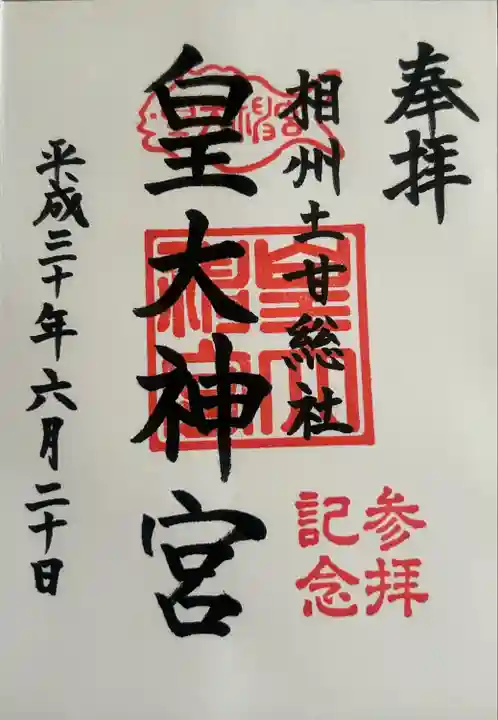 奉拝
相州土甘総社
皇大神宮
平成三十年六月二十日
参拝
記念
皇大神宮